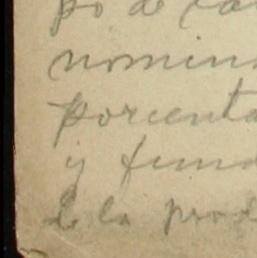 po de ca
nomina
porcenta
y func
de la prod